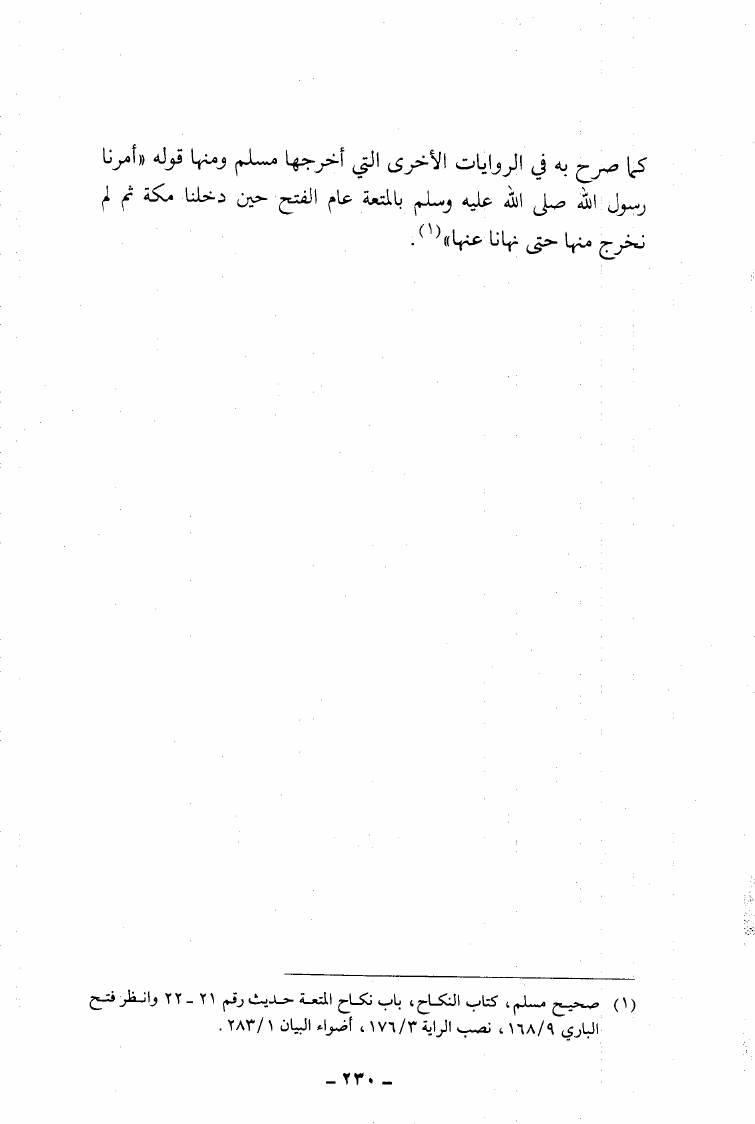 كما صرح به في الروايات الأخرى التي أخرجها مسلم ومنها قوله «أمرنا
رسول الله صلى الله عليه وسلم بالمتعة عام الفتح حين دخلنا مكة ثم لم
نخرج منها حتى نهانا عنها»(١).
(١) صحيح مسلم، كتاب النكاح، باب نكاح المتعة حديث رقم ٢١ - ٢٢ وانظر فتح
الباري ١٦٨/٩، نصب الراية ١٧٦/٣، أضواء البيان ٢٨٣/١.
- ٢٣٠ -